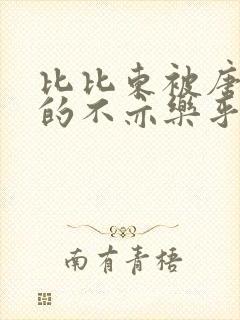 比比东被唐
的不亦乐乎
南有青梧